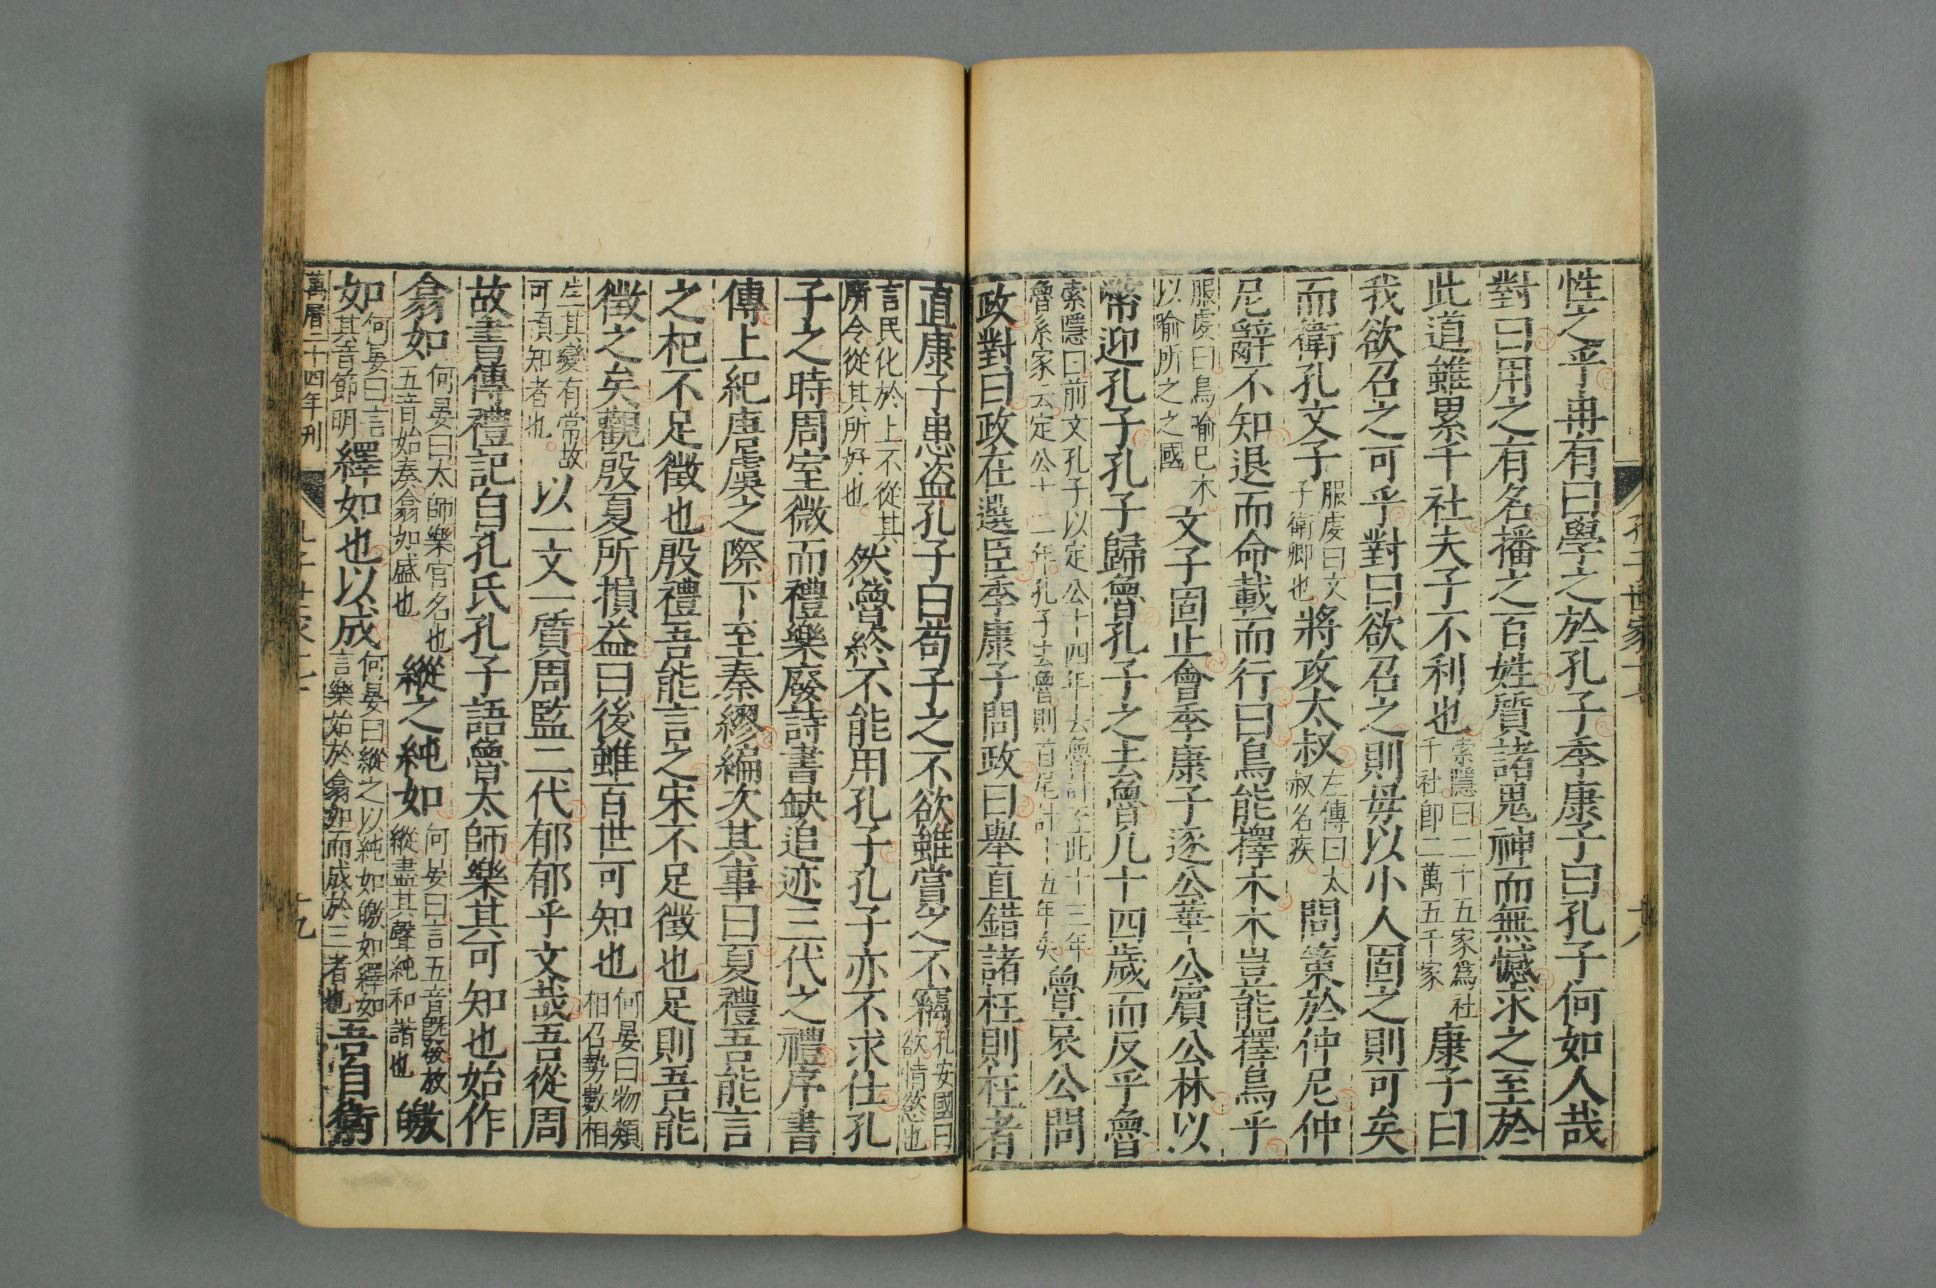 性之乎冉有曰學之於孔子季康子曰孔子何如人哉
對曰用之有名播之百姓質諸鬼神而無憾求之至於
此道雖累千社夫子不利也索隱曰二十五家爲社千社即二萬五千家康子曰
我欲召之可乎對曰欲召之則毋以小人固之則可矣
而衛孔文子服虔曰文子衛卿也將攻太叔左傳曰太叔名疾問策於仲尼仲
尼辭不知退而命載而行曰鳥能擇木木豈能擇鳥乎
服虔曰鳥喻己木以喻所之之國文子固止會季康子逐公華公賓公林以
幣迎孔子孔子歸魯孔子之去魯凡十四歲而反乎魯
索隱曰前文孔子以定公十四年去魯計至此十三年魯系家云定公十二年孔子去魯則首尾計十五年矣魯哀公問
政對曰政在選臣季康子問政曰舉直錯諸枉則枉者
直康子患盜孔子曰苟子之不欲雖賞之不竊孔安國曰欲情慾也
言民化於上不從其所令從其所好也然魯終不能用孔子孔子亦不求仕孔
子之時周室微而禮樂廢詩書缺追迹三代之禮序書
傳上紀唐虞之際下至秦繆編次其事曰夏禮吾能言
之杞不足徵也殷禮吾能言之宋不足徵也足則吾能
徵之矣觀殷夏所損益曰後雖百世可知也何晏曰物類相召勢數相
生其變有常故可預知者也以一文一質周監二代郁郁乎文哉吾從周
故書傳禮記自孔氏孔子語魯太師樂其可知也始作
翕如何晏曰太師樂官名也五音始奏翕如盛也縱之純如何晏曰言五音既發放縱盡其聲純和諧也皦
如何晏曰言其音節明繹如也以成何晏曰縱之以純如皦如繹如言樂始於翕如而成於三者也吾自衛
萬曆二十四年刊
孔子世家十七
十九